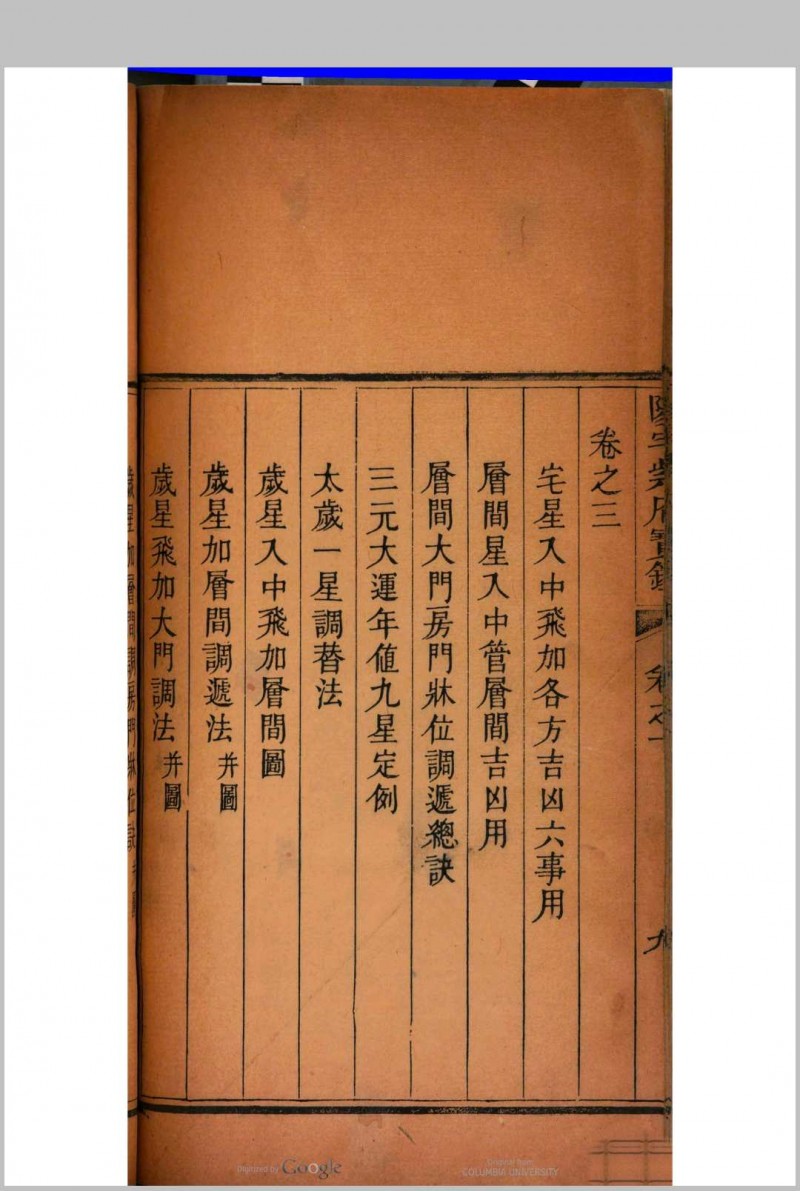 卷之三
宅星入中飛加各方吉凶六事用
層間星入中管層間吉凶用
層間大門房門牀位調遞總訣
三元大運年值九星定例
太歲一星調替法
歲星入中飛加層間圖
歲星加層間調遞法 并圖
歲星飛加大門調法 并圖
卷之一
九
Digitized by Google
Original from
COLUMBIA UNIVERSITY